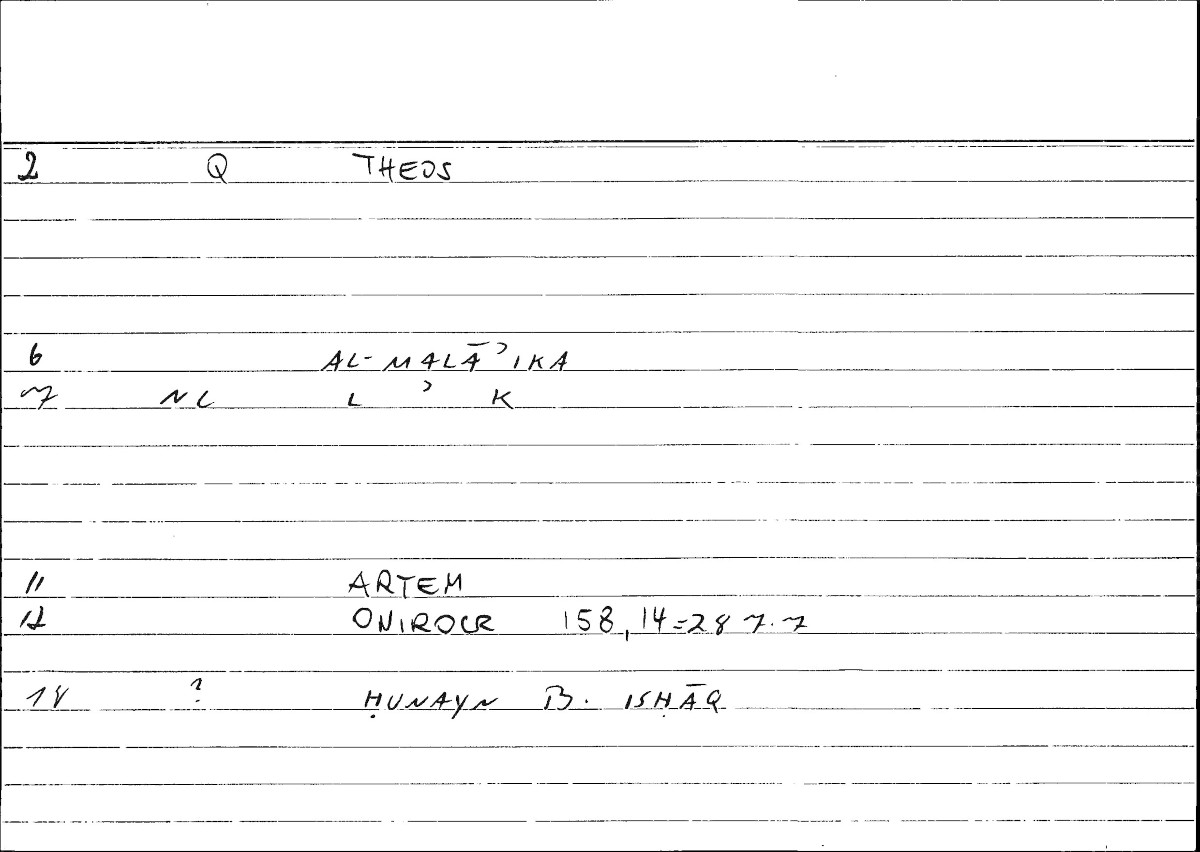 2 Q THEOS
6 AL-MALĀʾIKA
7 NL L ʾ K
11 ARTEM
12 ONIROCR 158,14=287.7
14 ? ḤUNAYN B. ISḤĀQ